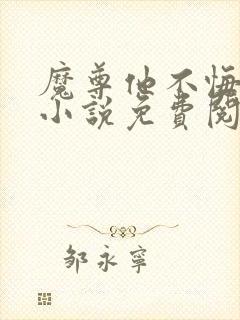 魔尊他不悔
小說免費閱
邹永寧